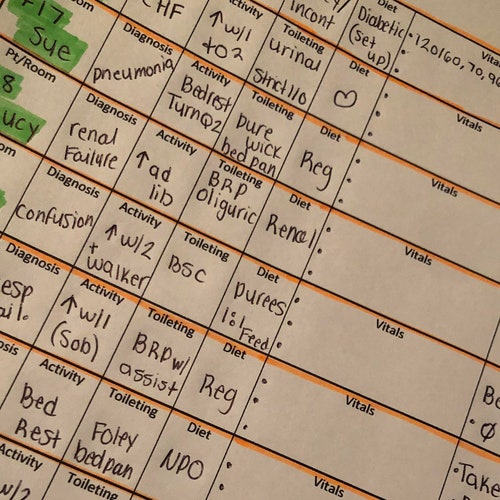 F17
Sue
CHF
Activity
↑ w/1
to 2
Toileting
Incont
urinal
Strict I/O
Diet
Diabetic
(set
up)
•120/60, 70, 9
Pt/Room
8
ucy
Diagnosis
pneumonia
Activity
Bedrest
Turn Q2
Toileting
Pure
wick
bedpan
Diet
♡
Vitals
Diagnosis
renal
Failure
Activity
↑ ad
lib
Toileting
BRP
oliguric
Diet
Reg
Vitals
Diagnosis
confusion
Activity
↑ w/2
+
walker
Toileting
BSC
Diet
Renal
Vitals
Diagnosis
esp
ail.
Activity
↑ w/1
(Sob)
Toileting
BRP w/
assist
Diet
Purees
1:1 Feed
Vitals
Activity
Bed
Rest
Toileting
Foley
bedpan
Diet
Reg
Vitals
Be
Ø
Activity
w/2
Toileting
Diet
NPO
Vitals
•Take